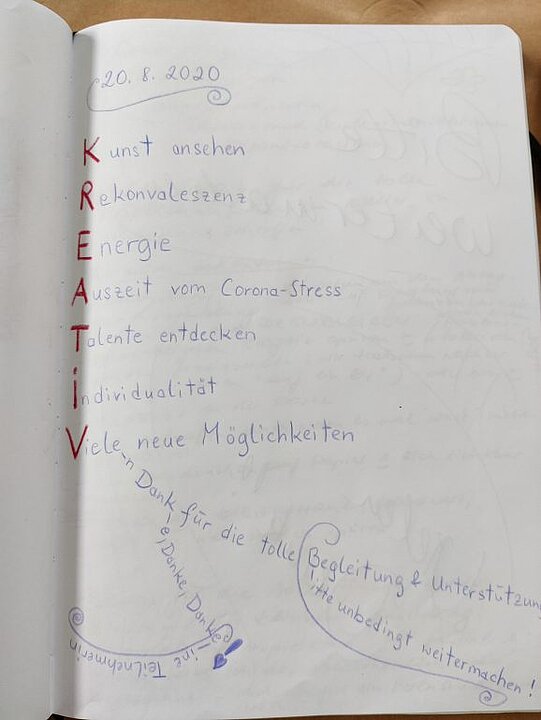 20. 8. 2020
Kunst ansehen
Rekonvaleszenz
Energie
Auszeit vom Corona-Stress
Talente entdecken
individualität
Viele neue Möglichkeiten
n Dank für die tolle Begleitung & Unterstützung
e, Danke, Danke!
itte unbedingt weitermachen!
ine Teilnehmerin